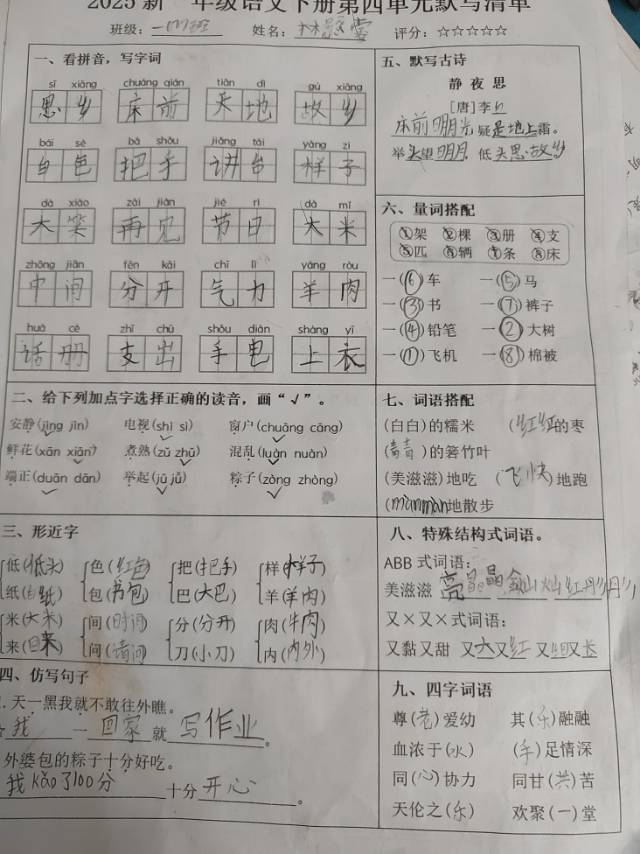 2025新一年级语文下册第四单元默写清单
班级：一(1)班 姓名： 评分：☆☆☆☆☆
一、看拼音，写字词
sī xiāng chuáng qián tiān dì gù xiāng
思乡 床前 天地 故乡
bái sè bǎ shǒu jiǎng tái yàng zi
白色 把手 讲台 样子
dà xiào zài jiàn jié rì dà mǐ
大笑 再见 节日 大米
zhōng jiān fēn kāi chī lì yáng ròu
中间 分开 气力 羊肉
huà cè zhī chū shǒu diàn shàng yī
话册 支出 手电 上衣
二、给下列加点字选择正确的读音，画“√”。
安静(jìng jìn) 电视(shì sì) 窗户(chuāng cāng)
鲜花(xān xiān) 煮熟(zǔ zhǔ) 混乱(luàn nuàn)
端正(duān dān) 举起(jū jǔ) 粽子(zòng zhòng)
三、形近字
低(低头) 色(红色) 把(把手) 样(样子)
纸( 纸) 包(书包) 巴(大巴) 羊(羊肉)
米(大米) 间(时间) 分(分开) 肉(牛肉)
来(回来) 问(请问) 刀(小刀) 内(内外)
四、仿写句子
1.天一黑我就不敢往外瞧。
☆我一回家就写作业。
外婆包的粽子十分好吃。
我kǎo了100分十分开心。
五、默写古诗
静夜思
[唐]李白
床前明月光疑是地上霜。
举头望明月，低头思故乡
六、量词搭配
①架 ②棵 ③册 ④支
⑤匹 ⑥辆 ⑦条 ⑧床
一(⑥)车 一(⑤)马
一(③)书 一(⑦)裤子
一(④)铅笔 一(②)大树
一(①)飞机 一(⑧)棉被
七、词语搭配
(白白)的糯米 (红红)的枣
(青青)的箬竹叶
(美滋滋)地吃 (飞快)地跑
(mànmàn)地散步
八、特殊结构式词语。
ABB式词语：
美滋滋 亮晶晶 金灿灿 红丹丹
又×又×式词语：
又黏又甜 又大又红 又细又长
九、四字词语
尊(老)爱幼 其(乐)融融
血浓于(水) (手)足情深
同(心)协力 同甘(共)苦
天伦之(乐) 欢聚(一)堂